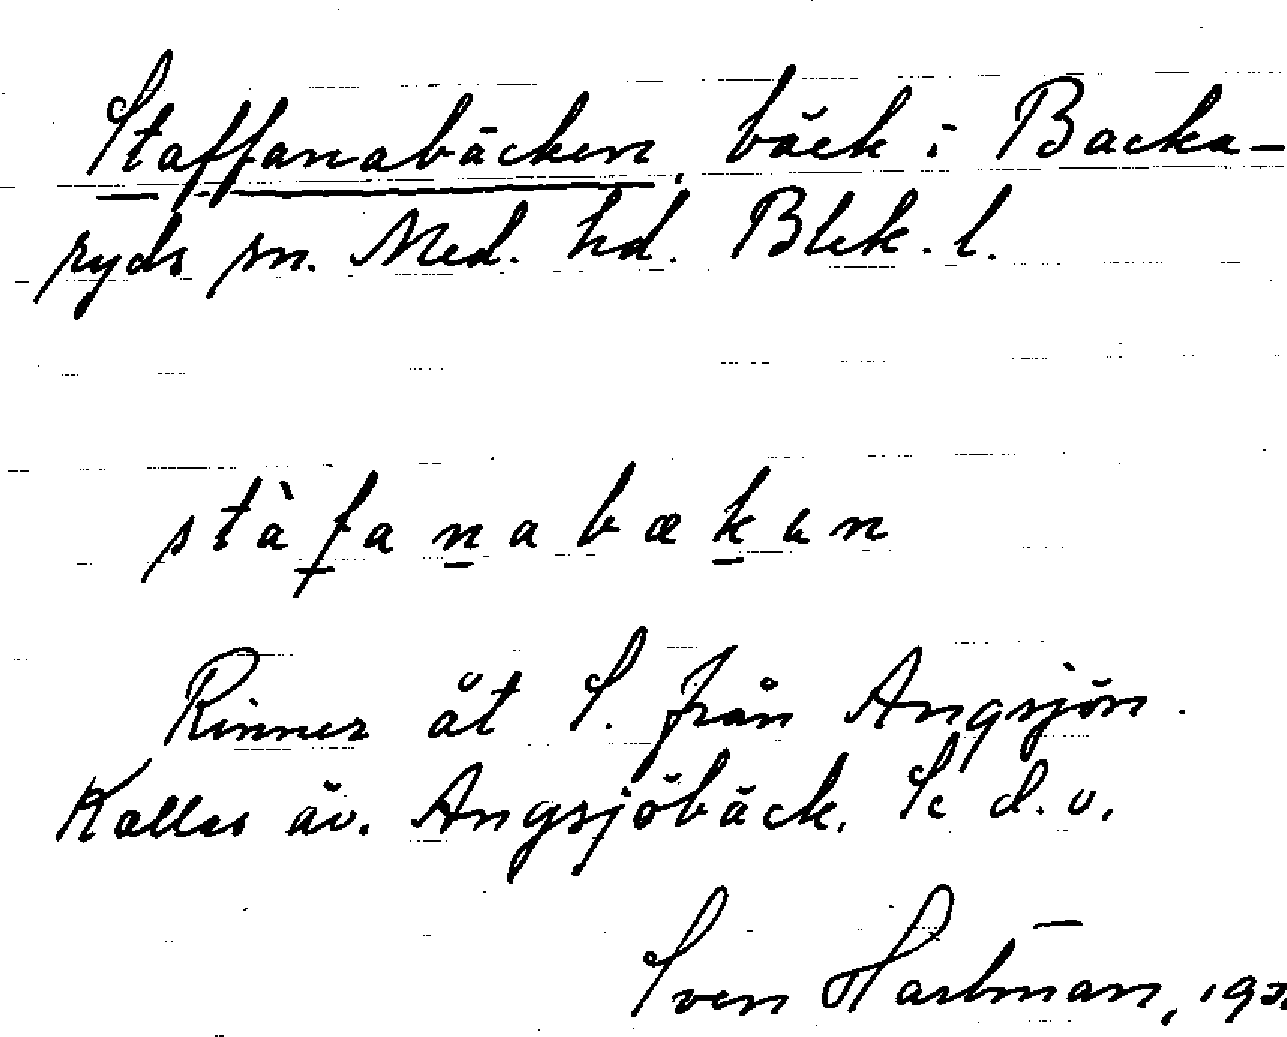 Staffanabäcken, bäck i Backa-
ryds sn. Med. hd. Blek. l.
stàfanabækan
Rinner åt S. från Angsjön.
Kallas äv. Angsjöbäck. Se d. o.
Sven Hartman,